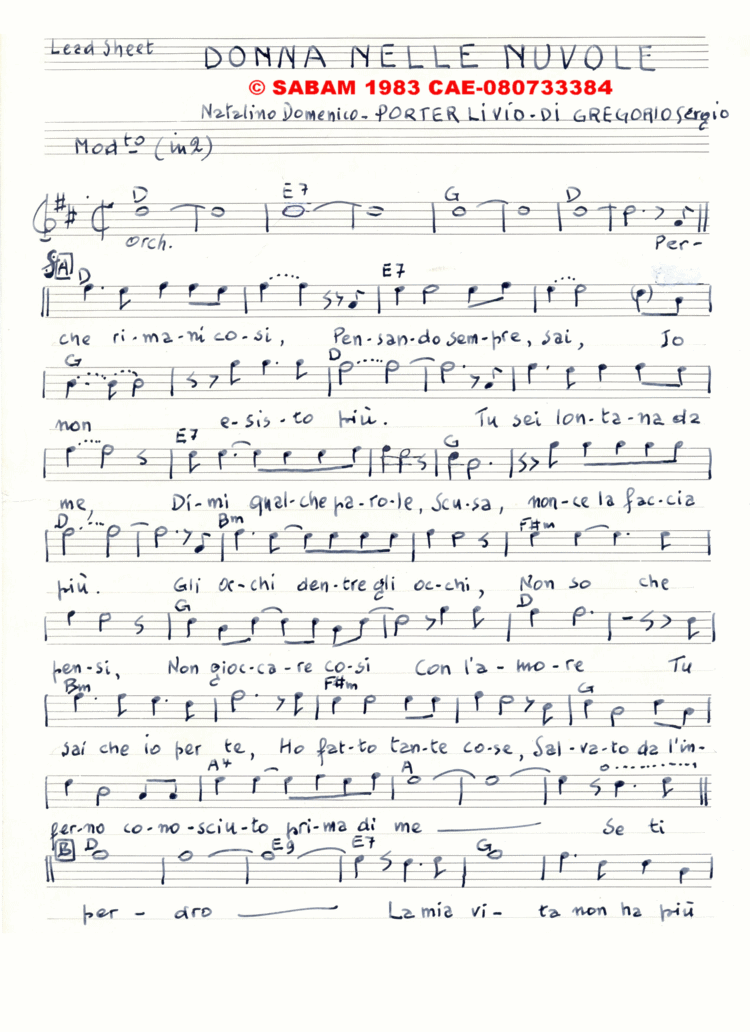 Lead Sheet DONNA NELLE NUVOLE
© SABAM 1983 CAE-080733384
Natalino Domenico - PORTER LIVIO - DI GREGORIO Sergio
Modto (in 2)
D E7 G D
Orch. Per-
A D E7
che ri-ma-ni co-si, Pen-san-do sem-pre, sai, Io
G D
non e-sis-to più. Tu sei lon-ta-na da
E7 G
me, Di-mi qual-che pa-ro-le, Scu-sa, non-ce la fac-cia
D Bm F#m
più. Gli oc-chi den-tre gli oc-chi, Non so che
G D
pen-si, Non gioc-ca-re co-si Con l'a-mo-re Tu
Bm F#m G
sai che io per te, Ho fat-to tan-te co-se, Sal-va-to da l'in-
A4 A
fer-no co-no-sciu-to pri-ma di me Se ti
B D E9 E7 G
per-dro La mia vi-ta non ha più